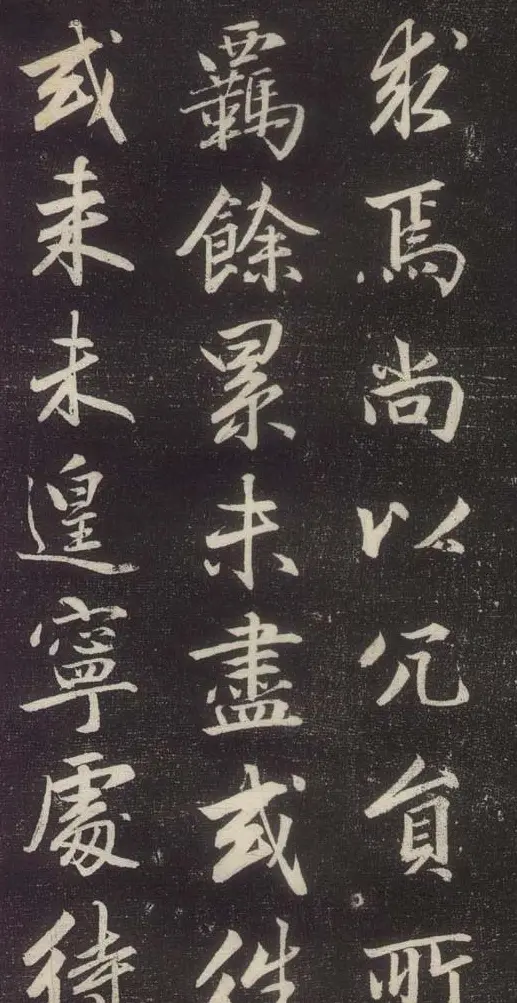 求焉尚以冗員所
羈餘累未盡或徃
或来未遑寧處待